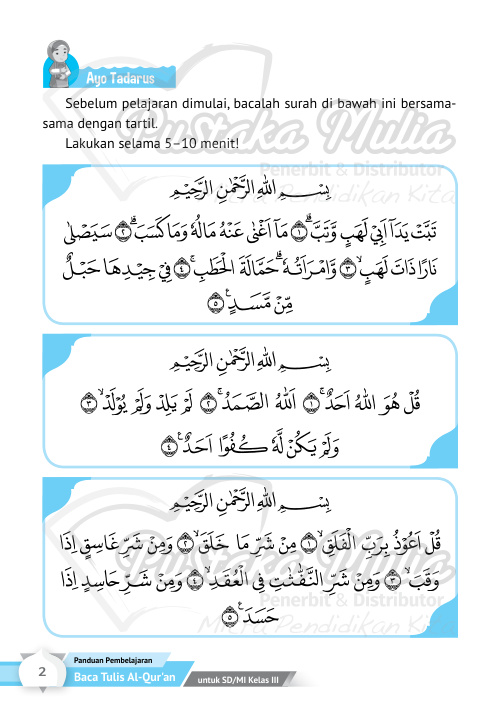 Ayo Tadarus
Sebelum pelajaran dimulai, bacalah surah di bawah ini bersama-
sama dengan tartil.
Lakukan selama 5–10 menit!
Pustaka Mulia
Penerbit & Distributor
Mitra Pendidikan Kita
بِسْــــمِ اللّٰهِ الرَّحْمٰنِ الرَّحِيْمِ
تَبَّتْ يَدَآ اَبِيْ لَهَبٍ وَّتَبَّۗ ۝١ مَآ اَغْنٰى عَنْهُ مَالُهٗ وَمَا كَسَبَۗ ۝٢ سَيَصْلٰى
نَارًا ذَاتَ لَهَبٍۙ ۝٣ وَّامْرَاَتُهٗۗ حَمَّالَةَ الْحَطَبِۚ ۝٤ فِيْ جِيْدِهَا حَبْلٌ
مِّنْ مَّسَدٍۚ ۝٥
بِسْــــمِ اللّٰهِ الرَّحْمٰنِ الرَّحِيْمِ
قُلْ هُوَ اللّٰهُ اَحَدٌۚ ۝١ اَللّٰهُ الصَّمَدُۚ ۝٢ لَمْ يَلِدْ وَلَمْ يُوْلَدْۙ ۝٣
وَلَمْ يَكُنْ لَّهٗ كُفُوًا اَحَدٌۚ ۝٤
بِسْــــمِ اللّٰهِ الرَّحْمٰنِ الرَّحِيْمِ
قُلْ اَعُوْذُ بِرَبِّ الْفَلَقِۙ ۝١ مِنْ شَرِّ مَا خَلَقَۙ ۝٢ وَمِنْ شَرِّ غَاسِقٍ اِذَا
وَقَبَۙ ۝٣ وَمِنْ شَرِّ النَّفّٰثٰتِ فِى الْعُقَدِۙ ۝٤ وَمِنْ شَرِّ حَاسِدٍ اِذَا
حَسَدَۚ ۝٥
Pustaka Mulia
Penerbit & Distributor
Mitra Pendidikan Kita
2
Panduan Pembelajaran
Baca Tulis Al-Qur'an
untuk SD/MI Kelas III